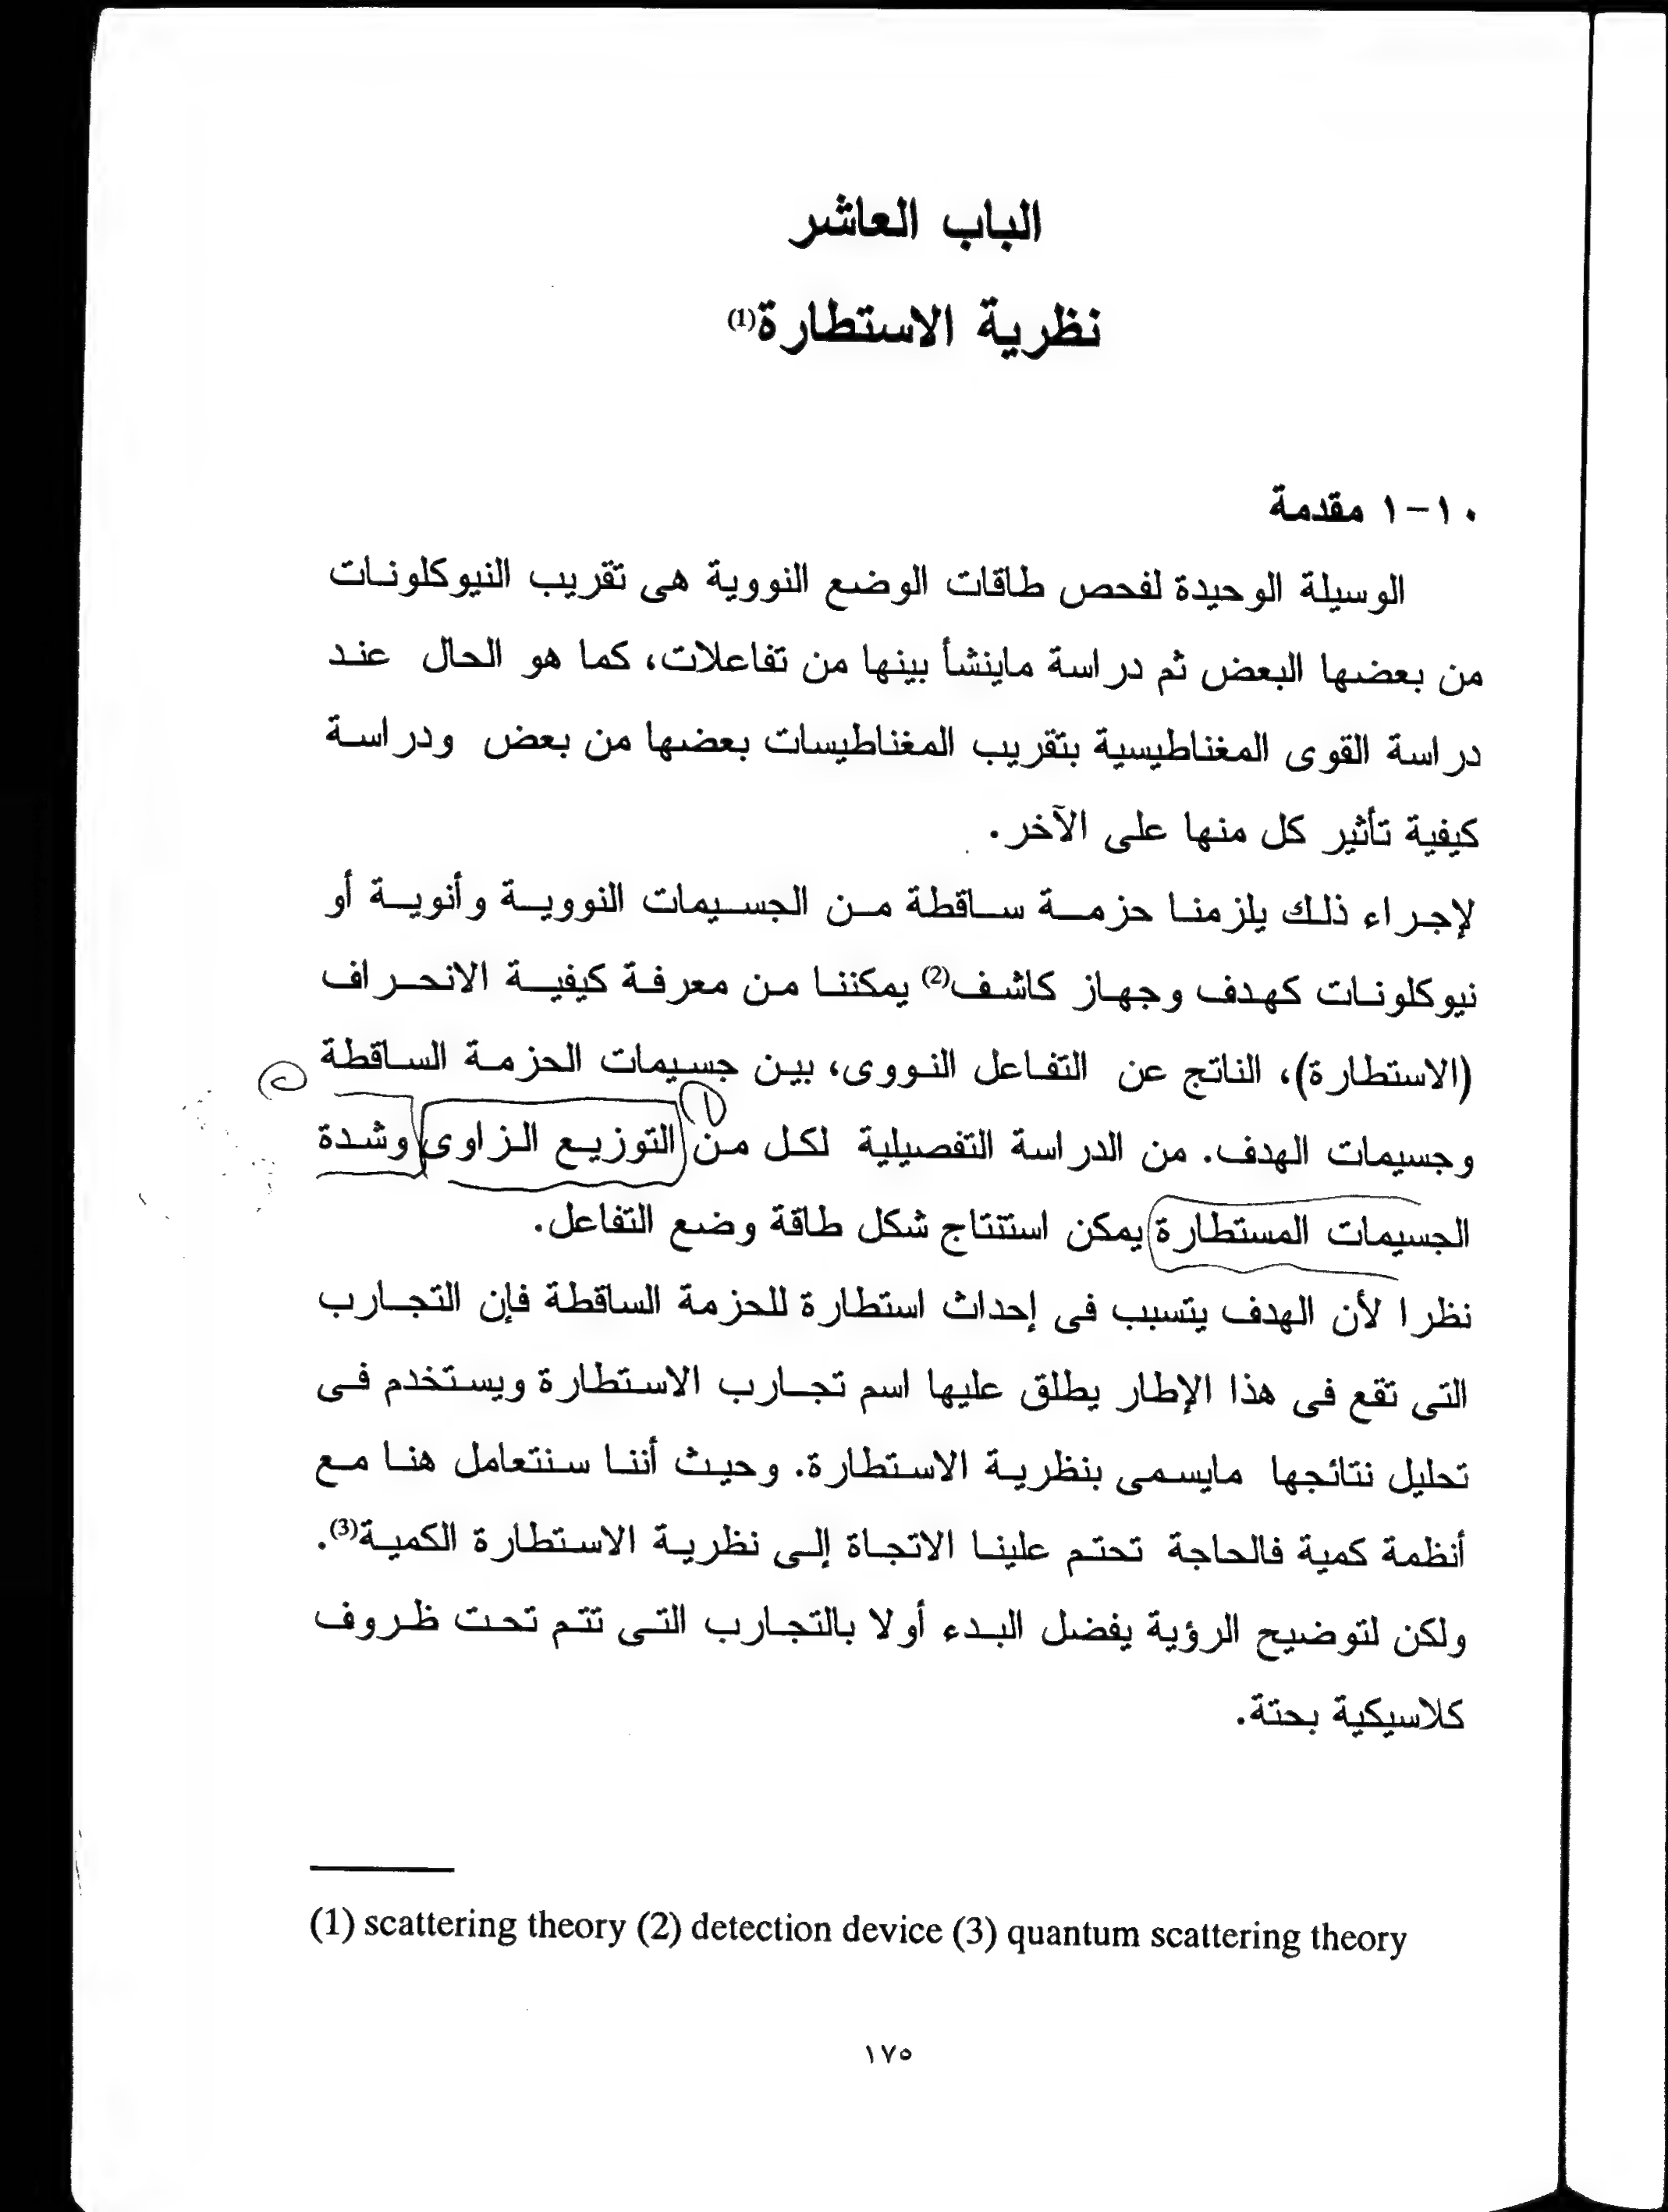 الباب العاشر
نظرية الاستطارة(1)
١٠-١ مقدمة
الوسيلة الوحيدة لفحص طاقات الوضع النووية هى تقريب النيوكلونات
من بعضها البعض ثم دراسة ماينشأ بينها من تفاعلات، كما هو الحال عند
دراسة القوى المغناطيسية بتقريب المغناطيسات بعضها من بعض ودراسة
كيفية تأثير كل منها على الآخر.
لإجراء ذلك يلزمنا حزمة ساقطة من الجسيمات النووية وأنوية أو
نيوكلونات كهدف وجهاز كاشف(2) يمكننا من معرفة كيفية الانحراف
(الاستطارة)، الناتج عن التفاعل النووى، بين جسيمات الحزمة الساقطة
وجسيمات الهدف. من الدراسة التفصيلية لكل من التوزيع الزاوى وشدة
الجسيمات المستطارة يمكن استنتاج شكل طاقة وضع التفاعل.
نظرا لأن الهدف يتسبب فى إحداث استطارة للحزمة الساقطة فإن التجارب
التى تقع فى هذا الإطار يطلق عليها اسم تجارب الاستطارة ويستخدم فى
تحليل نتائجها مايسمى بنظرية الاستطارة. وحيث أننا سنتعامل هنا مع
أنظمة كمية فالحاجة تحتم علينا الاتجاة إلى نظرية الاستطارة الكمية(3).
ولكن لتوضيح الرؤية يفضل البدء أولا بالتجارب التى تتم تحت ظروف
كلاسيكية بحتة.
(1) scattering theory (2) detection device (3) quantum scattering theory
١٧٥